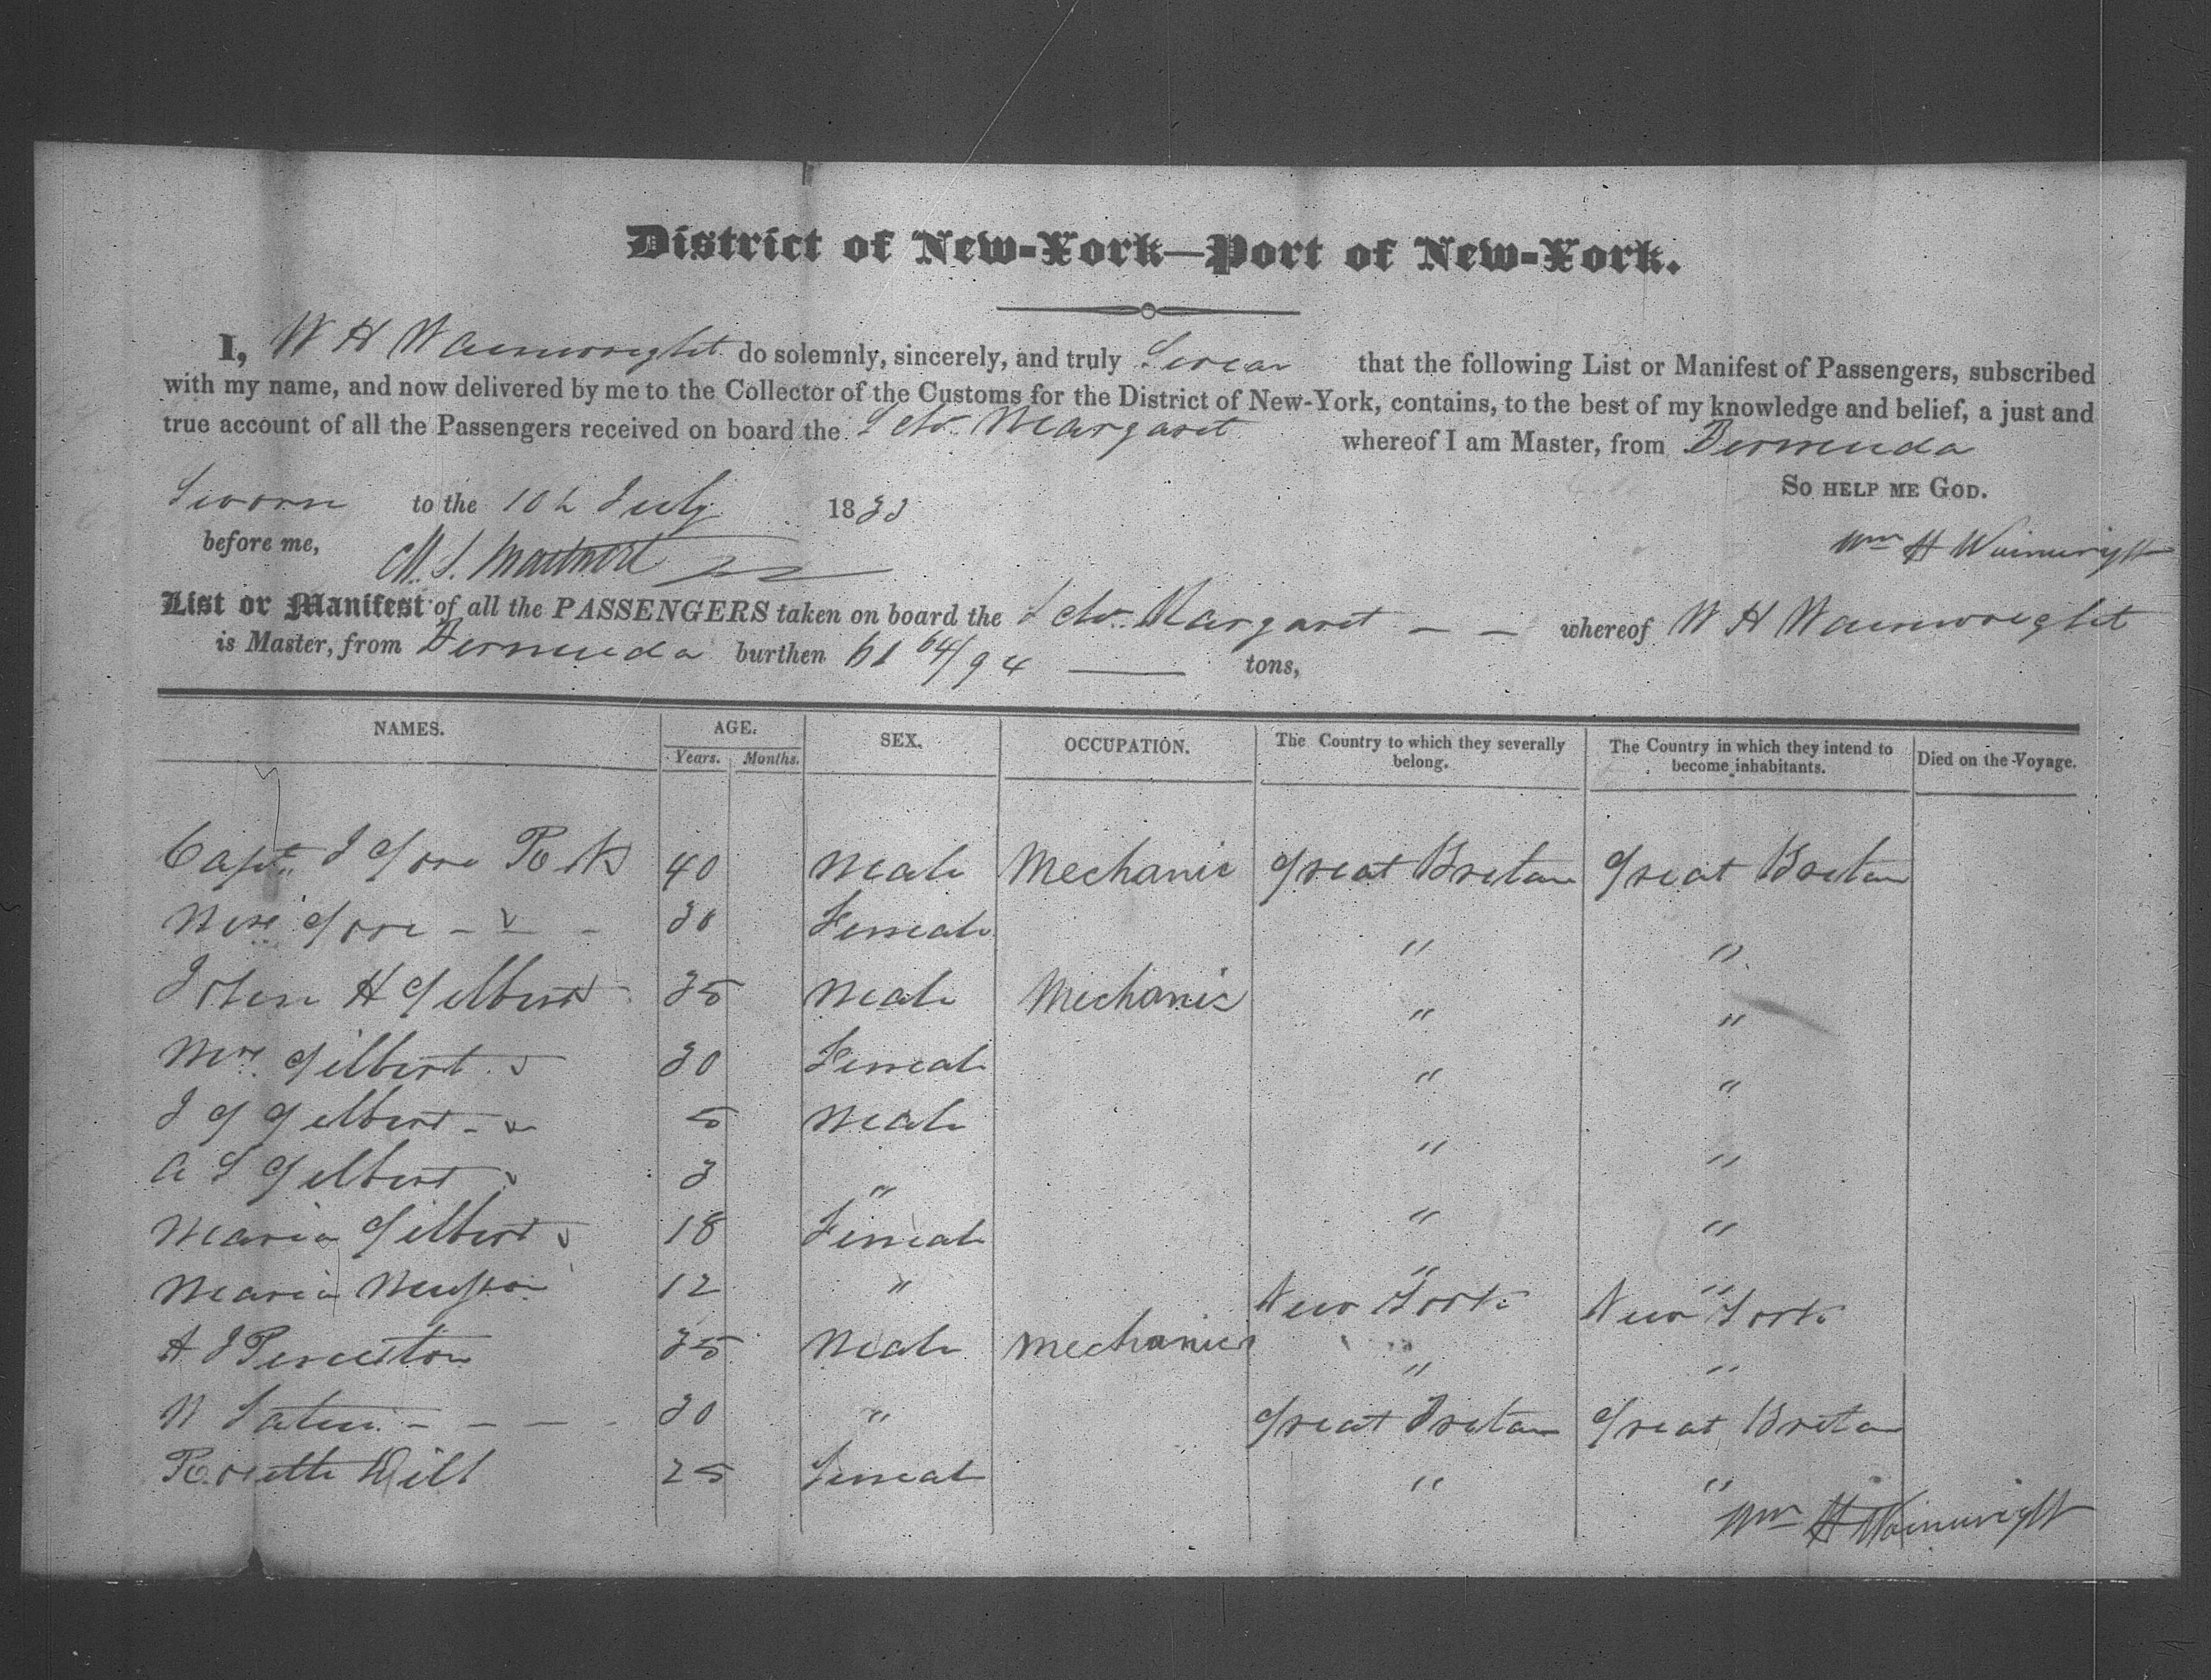 District of New-York—Port of New-York.
I, W H Wainwright do solemnly, sincerely, and truly Swear that the following List or Manifest of Passengers, subscribed
with my name, and now delivered by me to the Collector of the Customs for the District of New-York, contains, to the best of my knowledge and belief, a just and
true account of all the Passengers received on board the Schr. Margaret whereof I am Master, from Bermuda
So help me God.
Sworn to the 10th July 1833
before me,
Wm H Wainwright
List or Manifest of all the PASSENGERS taken on board the Schr. Margaret — — whereof W H Wainwright
is Master, from Bermuda burthen 61 64/94 — tons,
NAMES. AGE. SEX. OCCUPATION. The Country to which they severally belong. The Country in which they intend to become inhabitants. Died on the Voyage.
Years. Months.
Capt. J Gore 40 Male Mechanic Great Britan Great Britan
Mrs Gore - - 30 Female " "
John H Gilbert 35 Male Mechanic " "
Mrs. Gilbert 30 Female " "
J G Gilbert - 5 Male " "
A S Gilbert 3 " " "
Maria Gilbert 18 Female " "
Maria 12 " New York New York
A J 35 Male Mechanic " "
N - - - - 30 " Great Britan Great Britan
Dill 25 Female " "
Wm H Wainwright